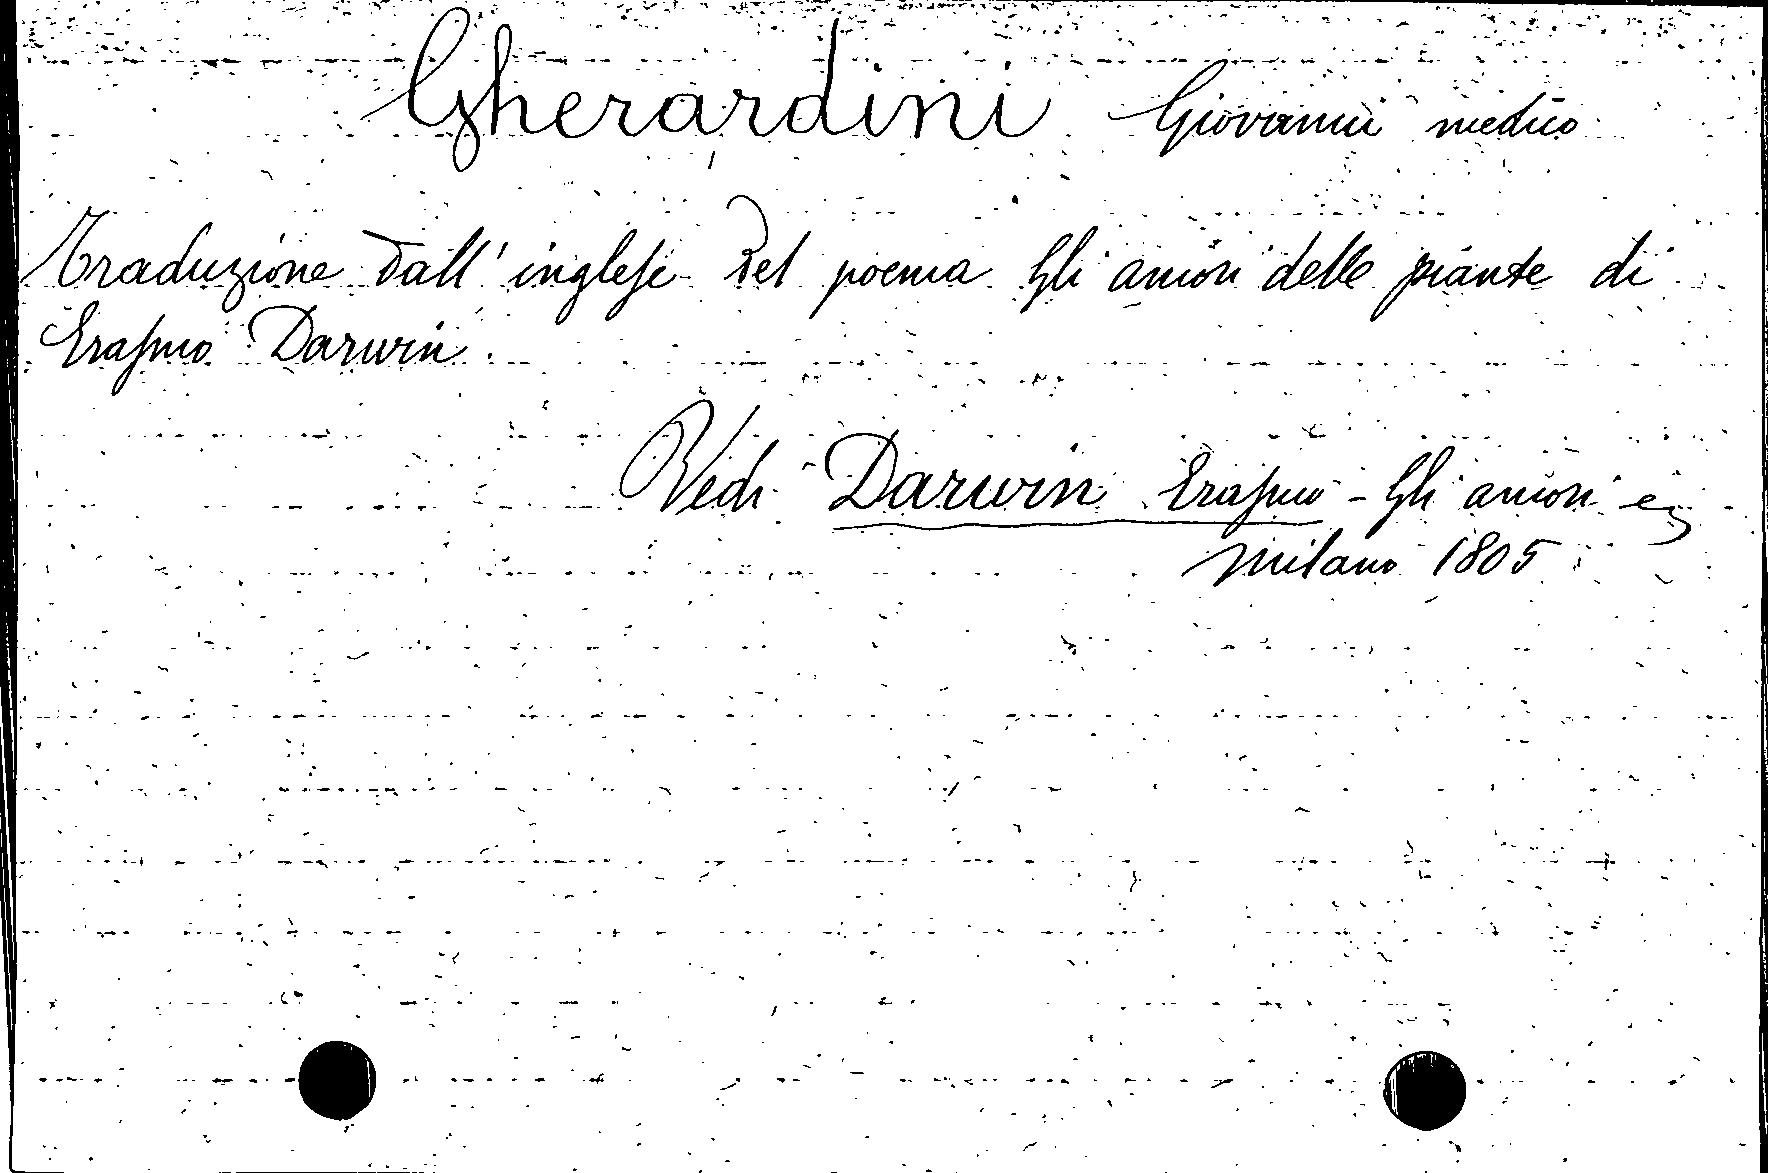 Gherardini Giovanni medico
Traduzione dall'inglese del poema Gli amori delle piante di
Erasmo Darwin.
Vedi Darwin Erasmo - Gli amori
Milano 1805